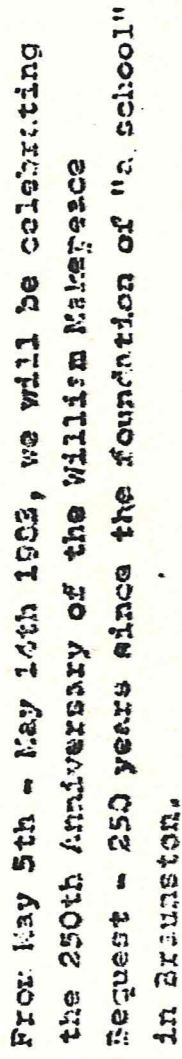 From May 5th - May 14th 1983, we will be celebrating
the 250th Anniversary of the William Makepeace
Bequest - 250 years since the foundation of "a school"
in Braunston.